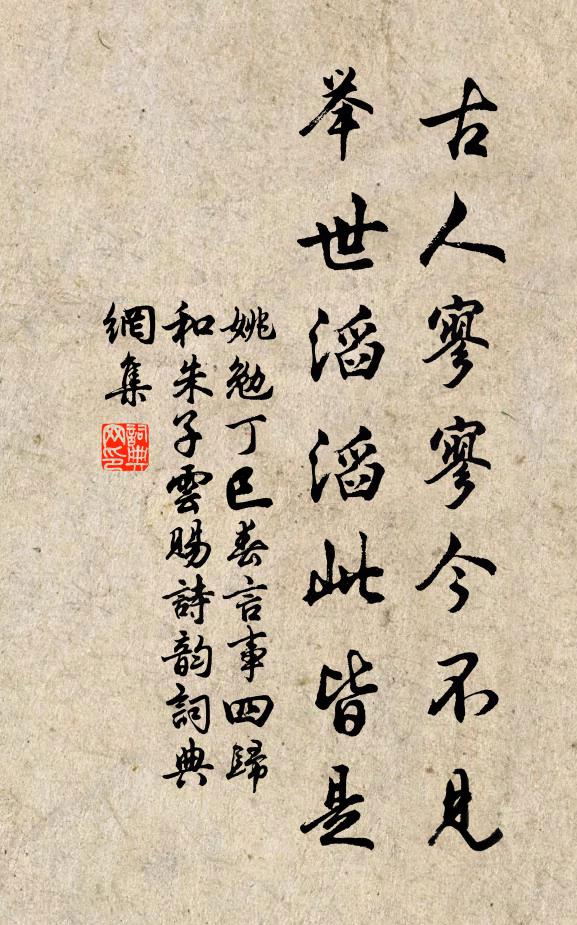 古人寥寥今不见
举世滔滔此皆是
姚勉丁巳春言事四歸
和朱子雲賜詩韵詞典
網集
詞典网印